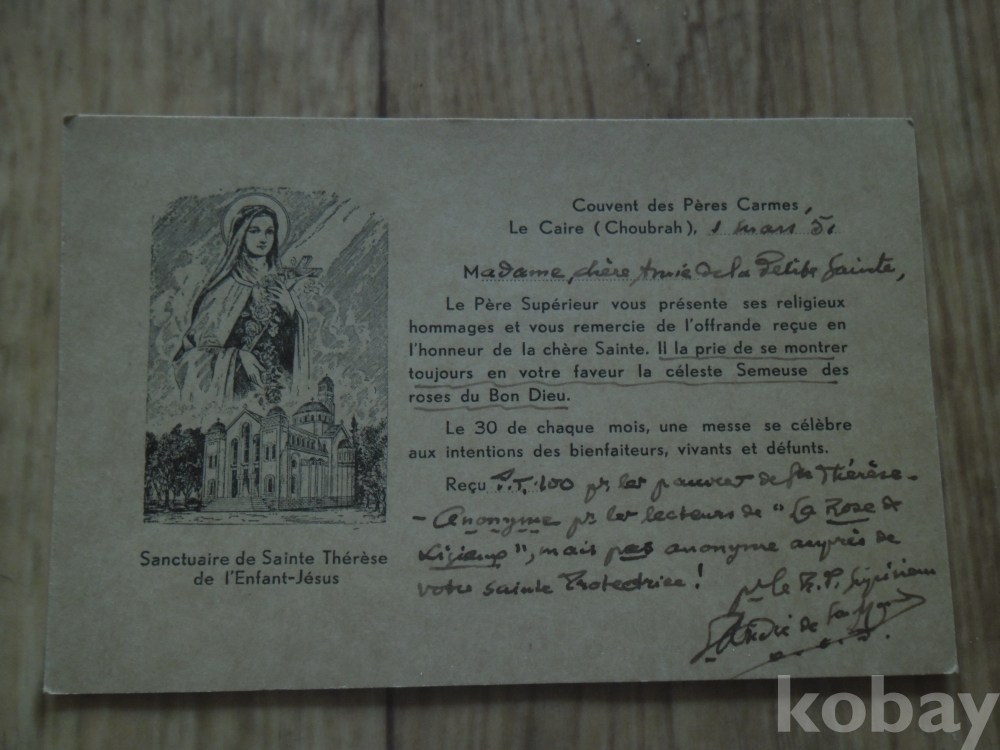 Couvent des Pères Carmes,
Le Caire (Choubrah), 1 mars 51
Madame, chère Amie de la Petite Sainte,
Le Père Supérieur vous présente ses religieux
hommages et vous remercie de l'offrande reçue en
l'honneur de la chère Sainte. Il la prie de se montrer
toujours en votre faveur la céleste Semeuse des
roses du Bon Dieu.
Le 30 de chaque mois, une messe se célèbre
aux intentions des bienfaiteurs, vivants et défunts.
Reçu P.T. 100 pr les pauvres de Ste Thérèse -
- Anonyme pr les lecteurs de "La Rose de
Lisieux", mais pas anonyme auprès de
votre sainte Protectrice!
pr le R.P. Supérieur
André de
Sanctuaire de Sainte Thérèse
de l'Enfant-Jésus
kobay